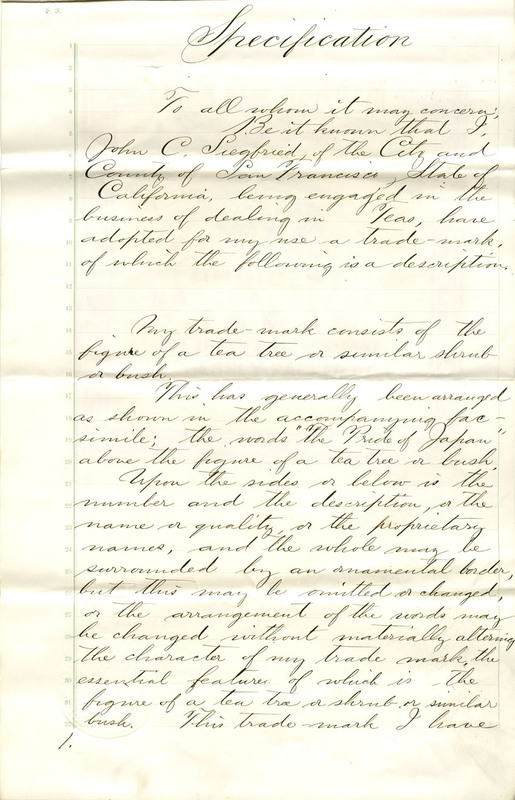 Specification
To all whom it may concern;
Be it known that I,
John C. Siegfried, of the City and
County of San Francisco, State of
California, being engaged in the
business of dealing in Teas, have
adopted for my use a trade-mark,
of which the following is a description.
My trade-mark consists of the
figure of a tea tree or similar shrub
or bush.
This has generally been arranged
as shown in the accompanying fac-
simile; the words "The Pride of Japan"
above the figure of a tea tree or bush.
Upon the sides or below is the
number and the description, or the
name or quality, or the proprietary
names, and the whole may be
surrounded by an ornamental border,
but this may be omitted or changed,
or the arrangement of the words may
be changed without materially altering
the character of my trade mark, the
essential features of which is the
figure of a tea tree or shrub or similar
bush. This trade-mark I have
1.